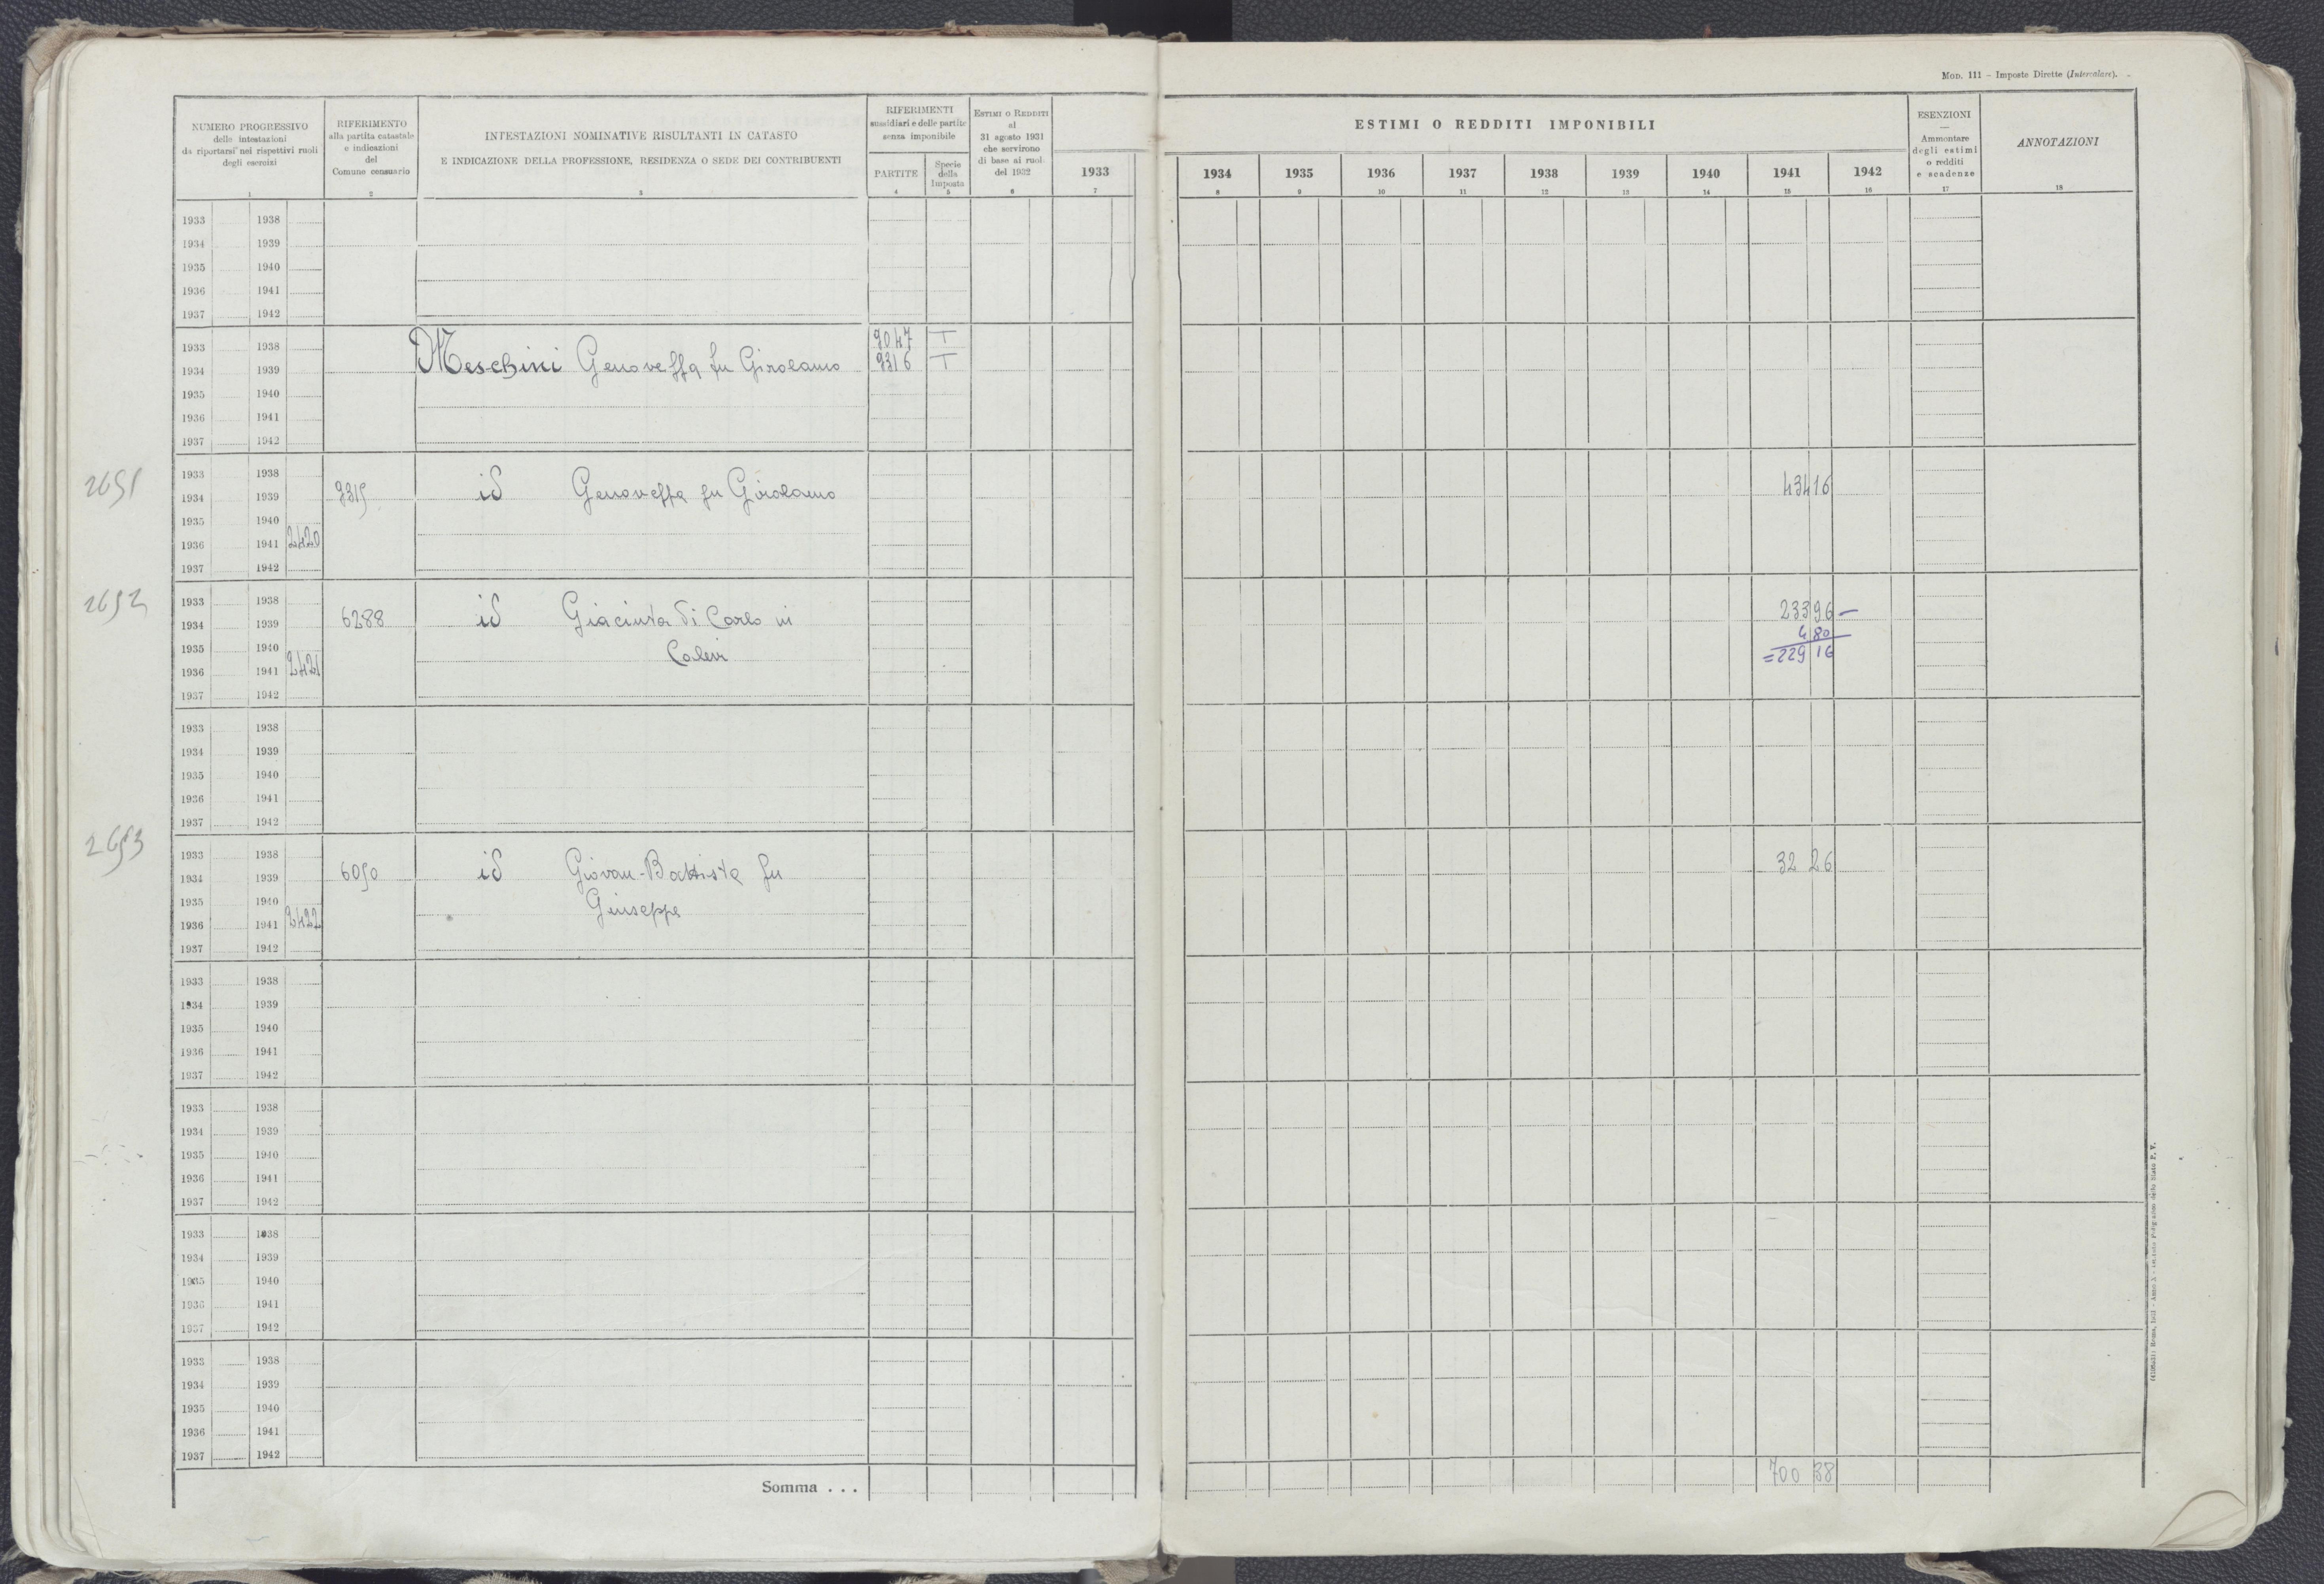 MOD. 111 - Imposte Dirette (Intercalare).
NUMERO PROGRESSIVO
delle intestazioni
da riportarsi nei rispettivi ruoli
degli esercizi
1
RIFERIMENTO
alla partita catastale
e indicazioni
del
Comune censuario
2
INTESTAZIONI NOMINATIVE RISULTANTI IN CATASTO
E INDICAZIONE DELLA PROFESSIONE, RESIDENZA O SEDE DEI CONTRIBUENTI
3
RIFERIMENTI
sussidiari e delle partite
senza imponibile
PARTITE
4
Specie
della
Imposta
5
ESTIMI O REDDITI
al
31 agosto 1931
che servirono
di base ai ruoli
del 1932
6
1933
7
ESTIMI O REDDITI IMPONIBILI
1934 1935 1936 1937 1938 1939 1940 1941 1942
8 9 10 11 12 13 14 15 16
ESENZIONI
Ammontare
degli estimi
o redditi
e scadenze
17
ANNOTAZIONI
18
1933 1938
1934 1939
1935 1940
1936 1941
1937 1942
9047 T
1933 1938
Meschini Genoveffa fu Girolamo 9316 T
1934 1939
1935 1940
1936 1941
1937 1942
1933 1938
2651
1934 1939 9315 id Genoveffa fu Girolamo 434 16
1935 1940
1936 1941 2420
1937 1942
2652
1933 1938 233 96 -
1934 1939 6288 id Giacinta di Carlo in
4 80
1935 1940 Calevi = 229 16
1936 1941 2421
1937 1942
1933 1938
1934 1939
1935 1940
1936 1941
1937 1942
2653
1933 1938 32 26
1934 1939 6050 id Giovan-Battista fu
1935 1940 Giuseppe
1936 1941 2422
1937 1942
1933 1938
1934 1939
1935 1940
1936 1941
1937 1942
1933 1938
1934 1939
1935 1940
1936 1941
1937 1942
1933 1938
1934 1939
1935 1940
1936 1941
1937 1942
1933 1938
1934 1939
1935 1940
1936 1941
1937 1942
Somma . . . 700 38